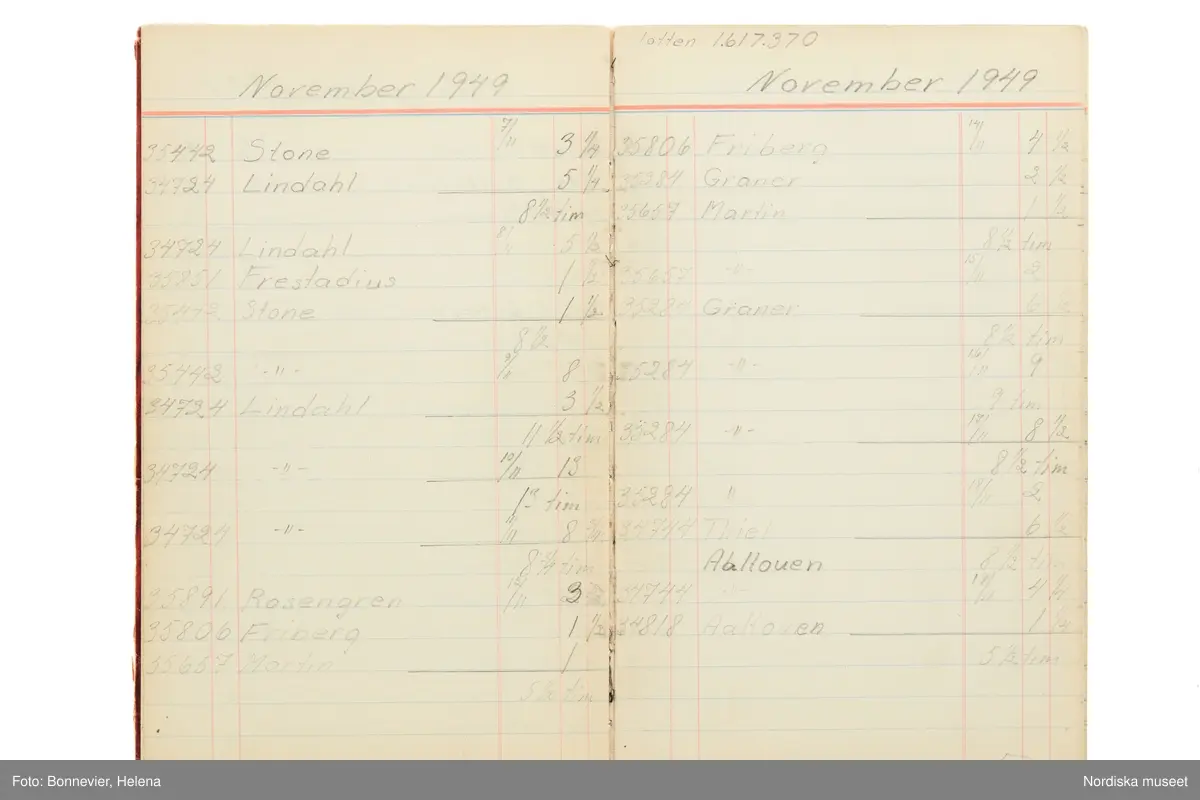 November 1949
35442 Stone 7/11 3 1/4
34724 Lindahl 5 1/4
8 1/2 tim
34724 Lindahl 8/11 5 1/2
35851 Frestadius 1 1/2
35442 Stone 1 1/2
8 1/2
35442 -"- 9/11 8
34724 Lindahl 3 1/2
11 1/2 tim
34724 -"- 10/11 13
13 tim
34724 -"- 11/11 8 3/4
8 3/4 tim
35891 Rosengren 12/11 3
35806 Friberg 1 1/2
35657 Martin 1
5 1/2 tim
totten 1.617.370
November 1949
35806 Friberg 14/11 4 1/2
35284 Graner 2 1/2
35657 Martin 1 1/2
8 1/2 tim
35657 -"- 15/11 2
35284 Graner 6 1/2
8 1/2 tim
35284 -"- 16/11 9
9 tim
35284 -"- 17/11 8 1/2
8 1/2 tim
35284 " 18/11 2
34744 Thiel 6 1/2
Aaltouen 8 1/2 tim
34744 -"- 19/11 4 1/4
34818 Aaltouen 1 1/4
5 1/2 tim
Foto: Bonnevier, Helena
Nordiska museet